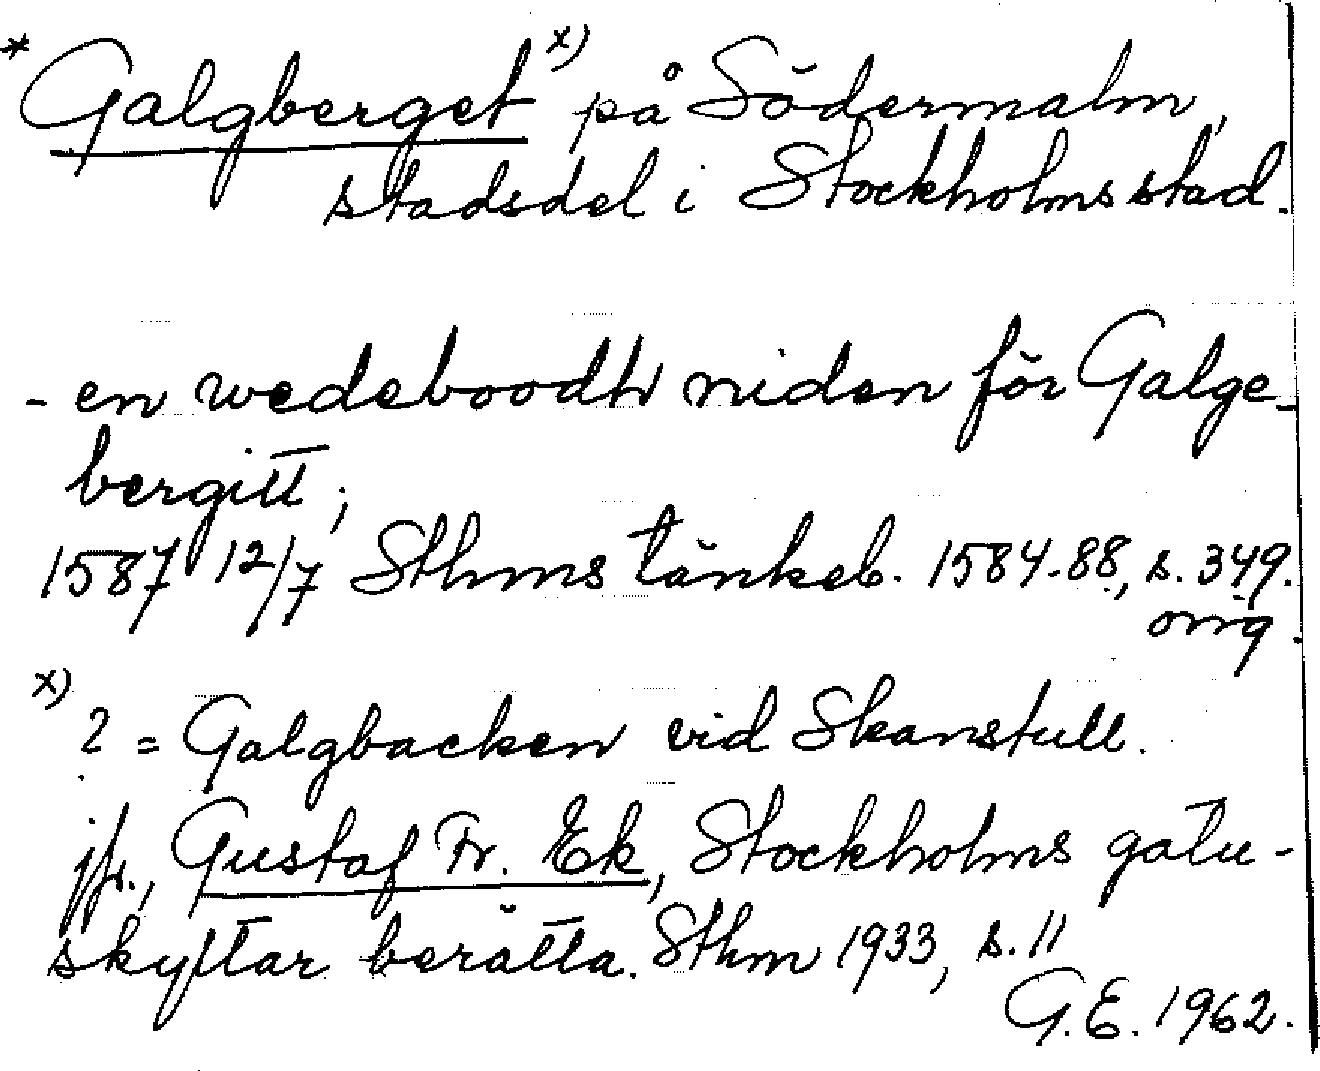 * Galgberget x) på Södermalm,
stadsdel i Stockholms stad.
- en wedeboodh niden för Galge-
bergitt;
1587 12/7 Sthms tänkeb. 1584-88, s. 349.
orig.
x) ? = Galgbacken vid Skanstull.
jfr., Gustaf Fr. Ek, Stockholms gatu-
skyltar berätta. Sthm 1933, s. 11
G.E. 1962.